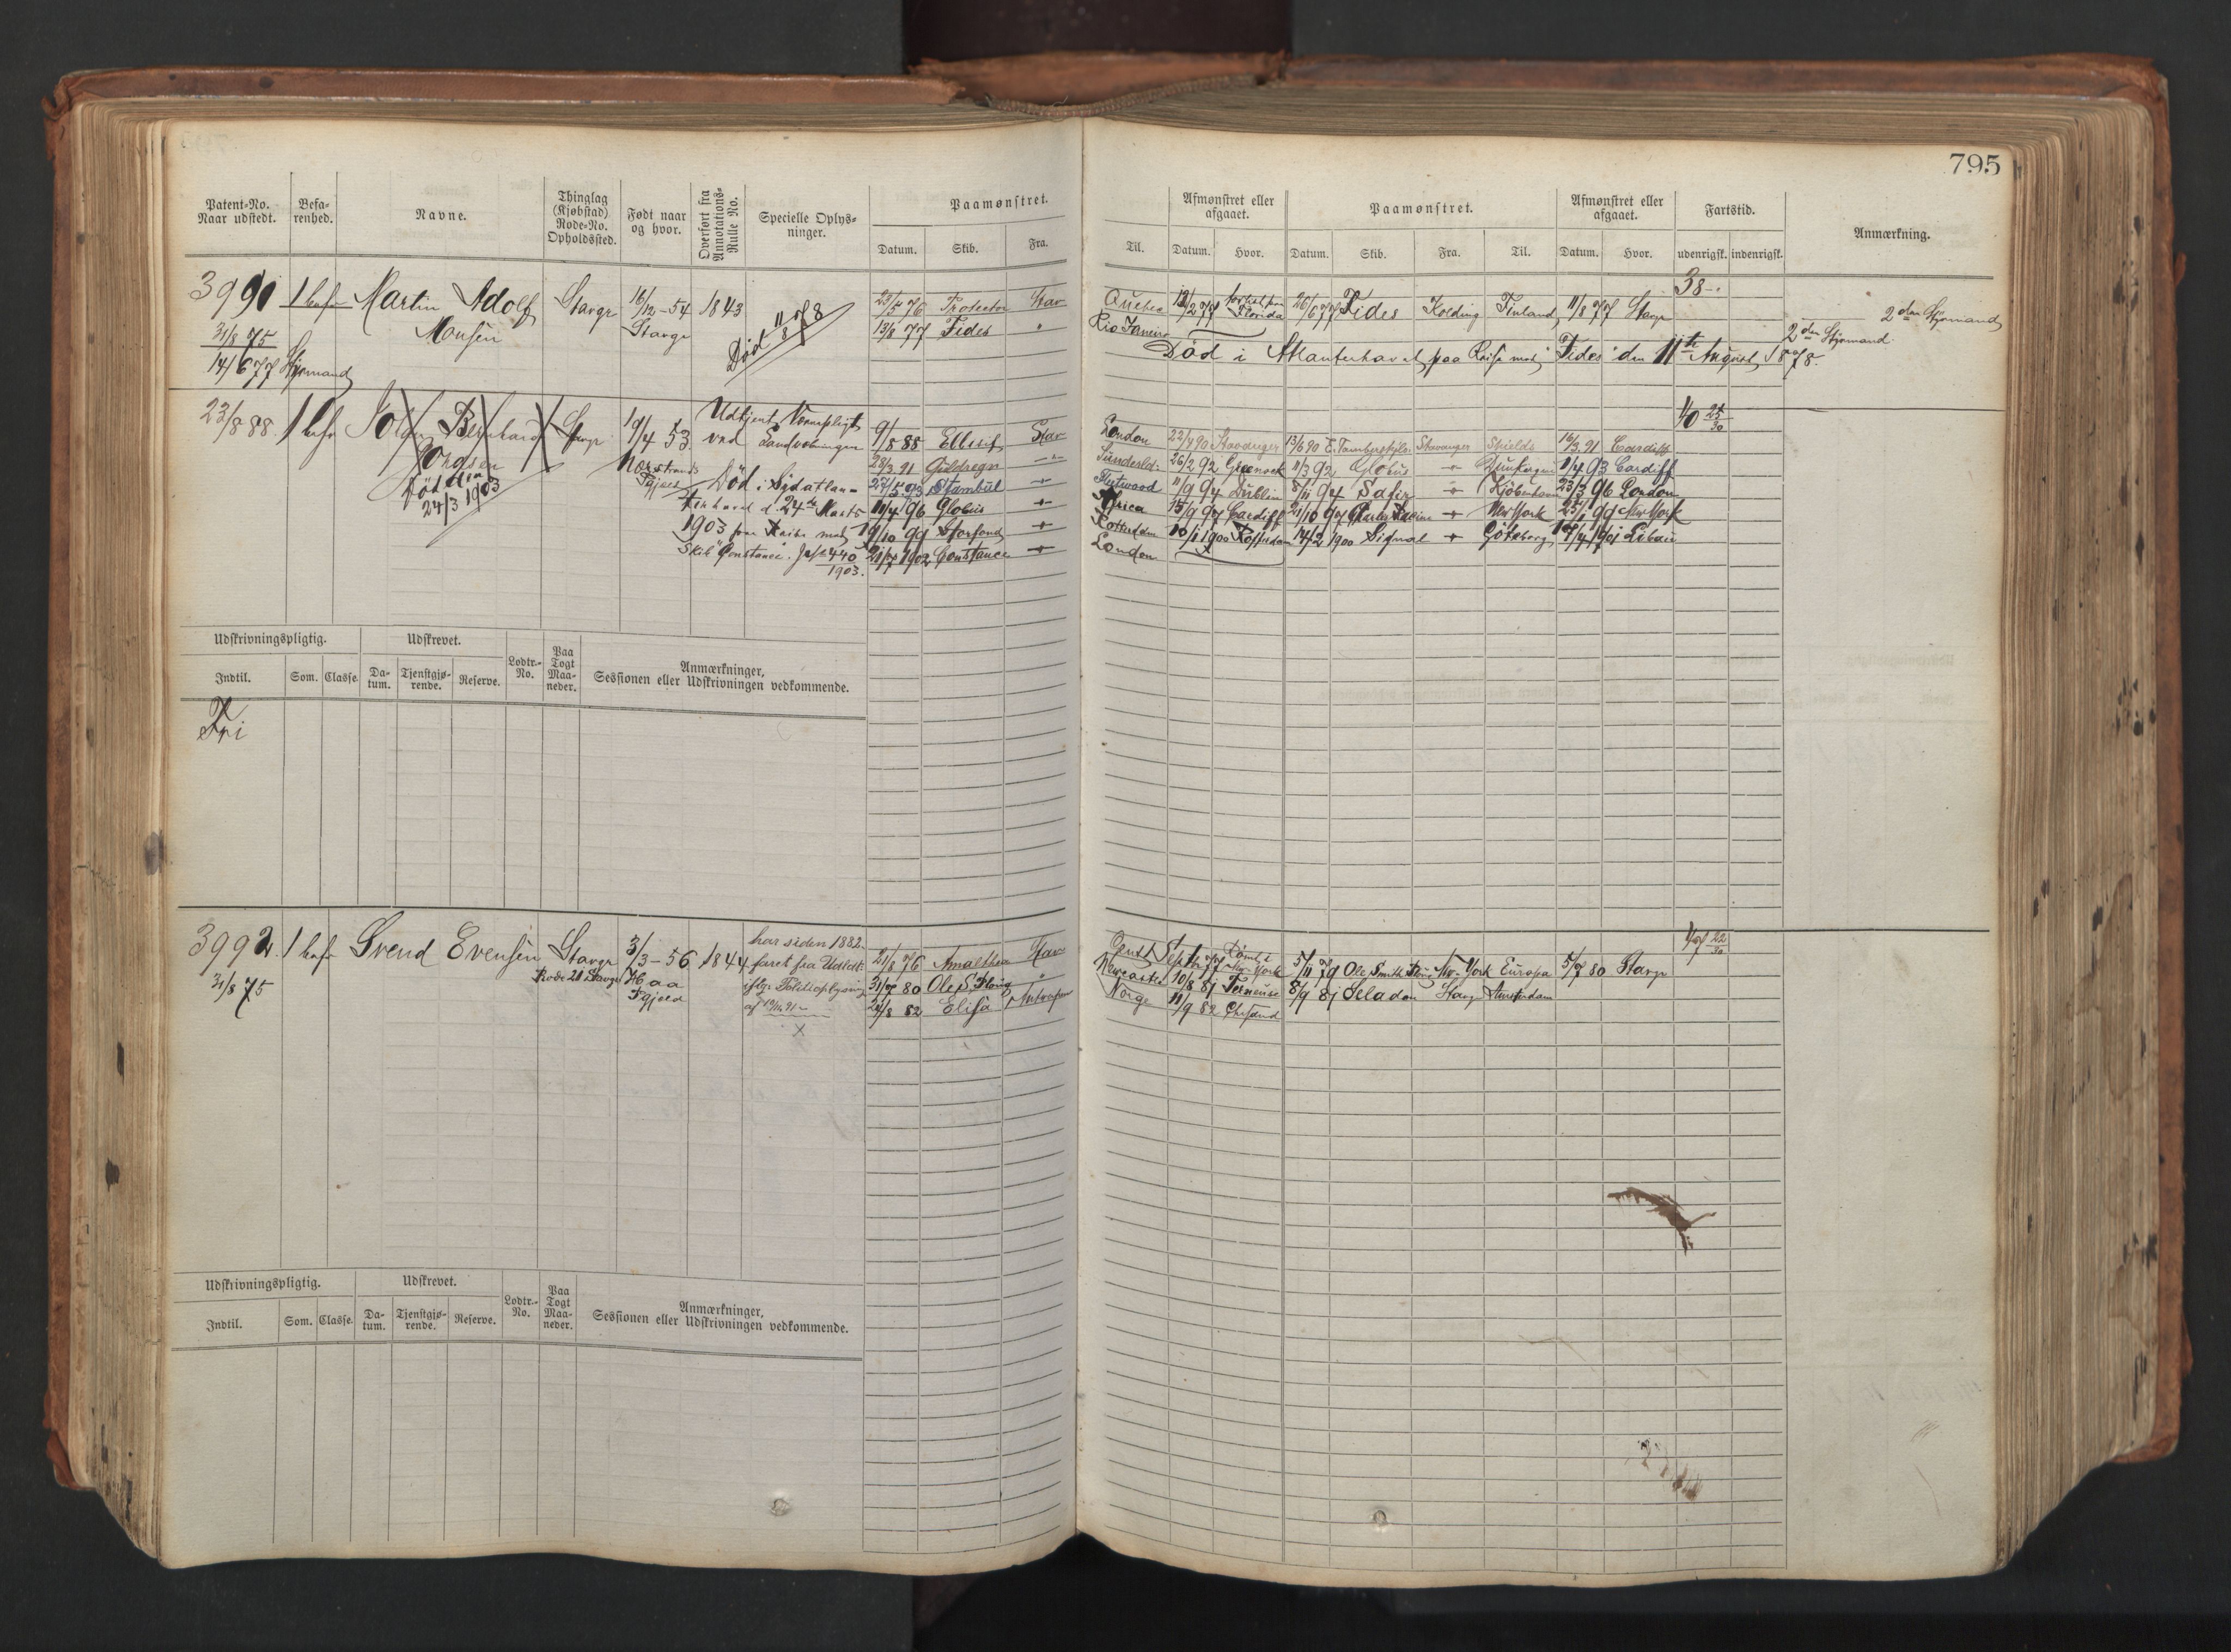 795
Patent-No. Naar udstedt.
Befa-renhed.
Navne.
Thinglag (Kjøbstad) Rode-No. Opholdssted.
Født naar og hvor.
Overført fra Annotations-Rulle No.
Specielle Oplys-ninger.
Paamønstret.
Datum. Skib. Fra. Til.
Afmønstret eller afgaaet.
Datum. Hvor.
Paamønstret.
Datum. Skib. Fra. Til.
Afmønstret eller afgaaet.
Datum. Hvor.
Fartstid.
udenrigsk. indenrigsk.
Anmærkning.
38
3990 1 bef Martin Adolf Stavgr 16/12-54 1843
Monsen Stavgr
31/8 75
14/6 77 Styrmand
Død 11/8 78
23/5 76 Protector Stav Quebec
26/6 77 Fides Kolding Finland 11/8 77 Stavgr
2den Styrmand
13/6 77 Fides " Rio Janeiro
2den Styrmand
Død i Atlanterhavet paa Reise med "Fides" den 11te August 1878.
40 25/30
23/8 88 1 bef Bernhard Stavgr 19/4 53
Død den
24/3 1903
Udtjent Vernepligt
ved Landvæbningen
Død i Sydatlan-
terhavet d. 24de Marts
1903 paa Reise med
Skib "Constance". 440
1903.
9/8 88 Ellisif Stav London 22/4 90 Stavanger 13/6 90 Stavanger Shields 16/3 91 Cardiff
23/3 91 Guldregn Sunderld. 26/2 92 Greenock 11/3 92 Globus Dunkerque 11/4 93 Cardiff
27/5 93 Stambul Fleetwood 11/9 94 Dublin 8/11 94 Safir Kjöbenhavn 23/3 96 London
11/4 96 Globus Africa 15/9 97 Cardiff 21/10 97 New York 25/1 99 New York
Storfond Rotterdam 10/1 1900 Rotterdam 14/2 1900 Signal Göteborg Libau
1902 Constance London
Udskrivningspligtig.
Udskrevet.
Lodtr.-No.
Paa Togt Maa-neder.
Anmærkninger, Sessionen eller Udskrivningen vedkommende.
Indtil. Som. Classe. Da-tum. Tjenstgjø-rende. Reserve.
Fri
3992 1 bef Svend Evensen Stavgr 3/3-56 1844
31/8 75
Rode 21 Stavgr
Haa
Pgjeld
har siden 1882
faret fra Udlldt.
iflg. Politioplysning
af
21/8 76 Amalthea Stav Sept 77 New-York 5/11 79 Ole Smith Ploug New-York Europa 5/7 80 Stavgr
31/7 80 Ole S. Ploug " Newcastle 10/8 81 Terneuse 8/9 81 Seladon Stavgr Amsterdam
24/8 82 Elisa Antwerpen Norge 11/9 82 Chrsand
22/30
Udskrivningspligtig.
Udskrevet.
Lodtr.-No.
Paa Togt Maa-neder.
Anmærkninger, Sessionen eller Udskrivningen vedkommende.
Indtil. Som. Classe. Da-tum. Tjenstgjø-rende. Reserve.